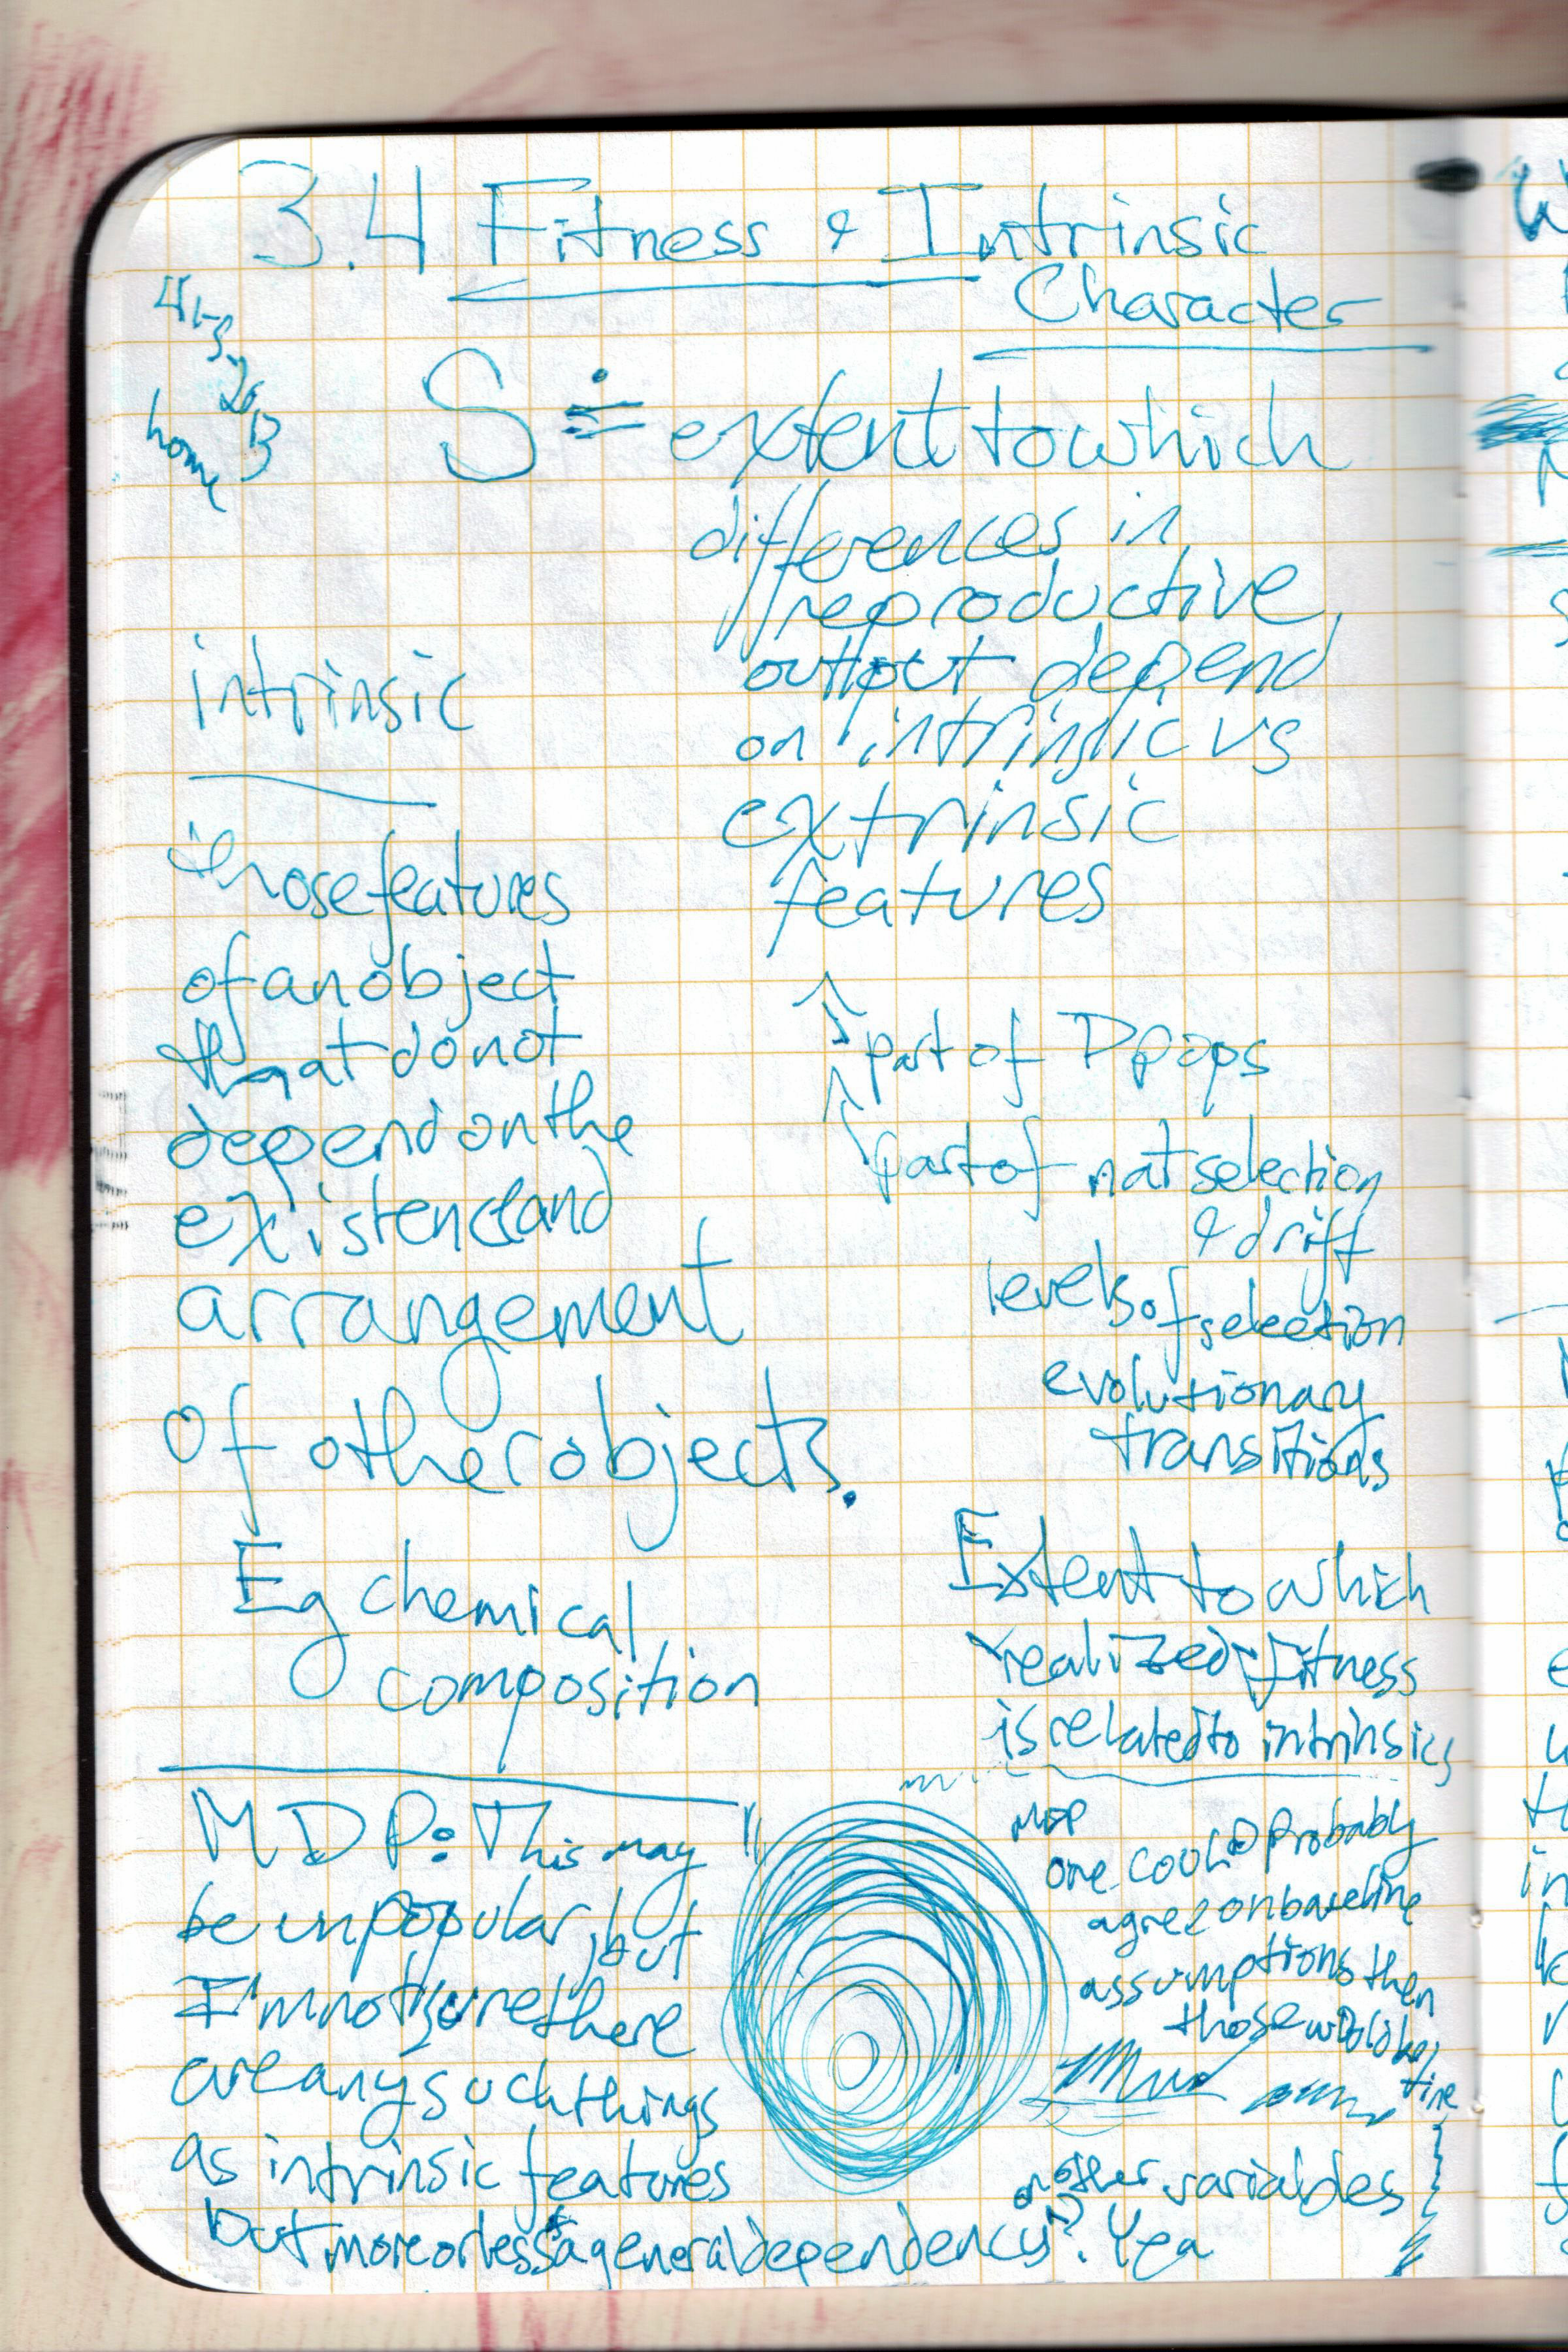 3.4 Fitness & Intrinsic
Character
4-5-2013
home
S ≐ extent to which
differences in
reproductive
output depend
on intrinsic vs
extrinsic
features
intrinsic
those features
of an object
that do not
depend on the
existence and
arrangement
of other objects.
Eg chemical
composition
↑ part of D pops
↑ part of nat selection
& drift
levels of selection
evolutionary
transitions
Extent to which
realized fitness
is related to intrinsics
MDP: This may
be unpopular, but
I'm not sure there
are any such things
as intrinsic features
but more or less a general dependency
on other variables
? Yea
MDP
one could probably
agree on baseline
assumptions then
those would be
fine